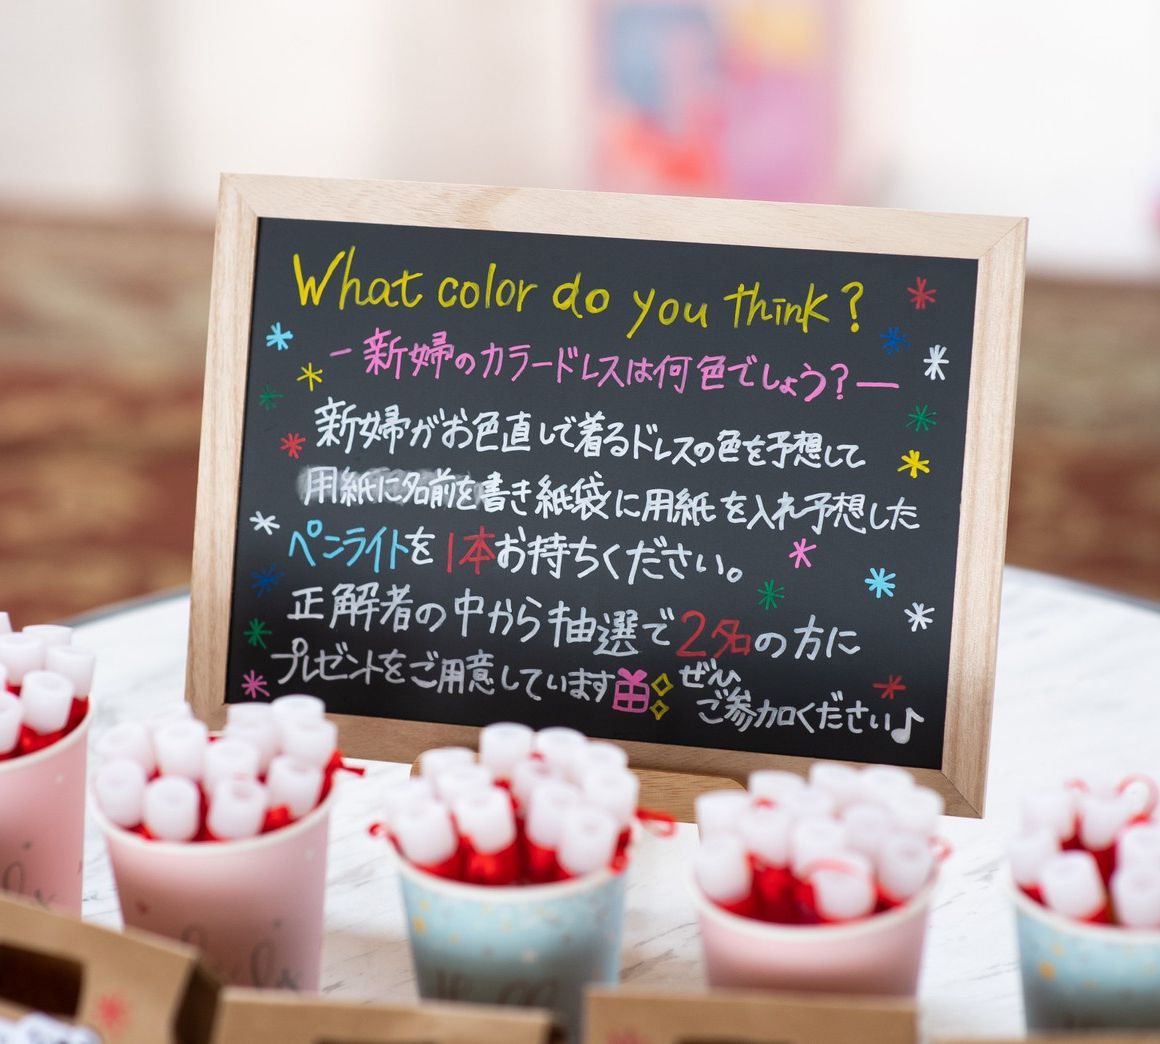 What color do you think?
－新婦のカラードレスは何色でしょう?－
新婦がお色直しで着るドレスの色を予想して
用紙に名前を書き紙袋に用紙を入れ予想した
ペンライトを1本お持ちください。
正解者の中から抽選で2名の方に
プレゼントをご用意しています ぜひ
ご参加ください♪